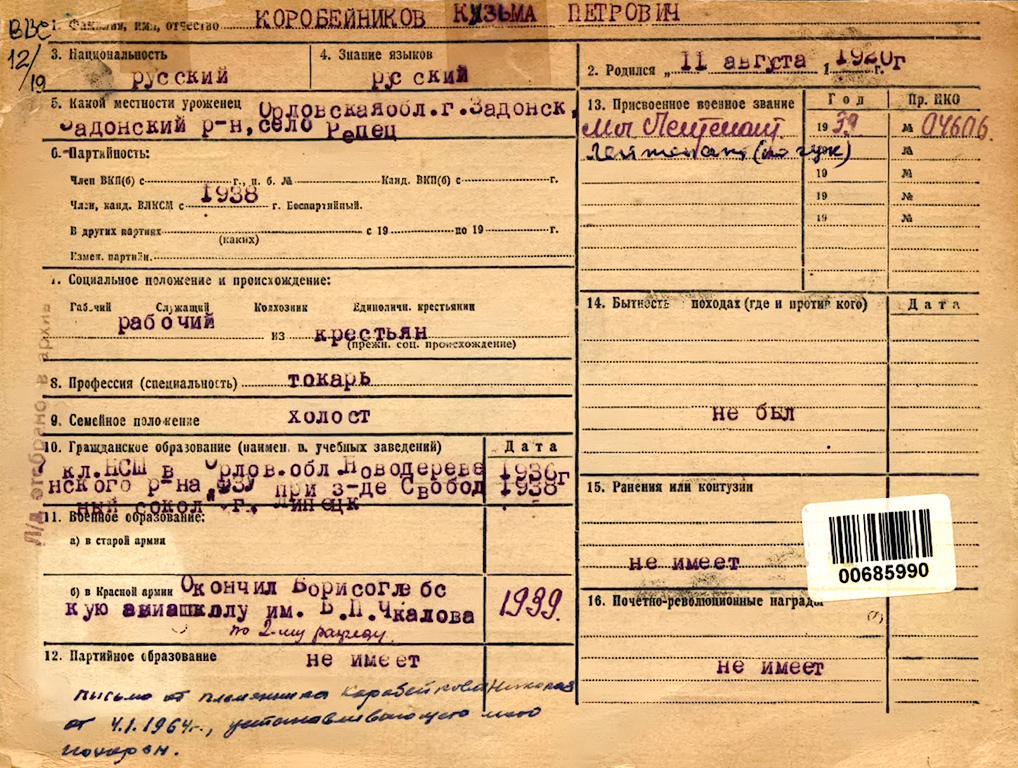 ВВС
12/19
1. Фамилия, имя, отчество КОРОБЕЙНИКОВ КУЗЬМА ПЕТРОВИЧ
3. Национальность
русский
4. Знание языков
русский
5. Какой местности уроженец Орловская обл. г. Задонск,
Задонский р-н, село Репец
6. Партийность:
Член ВКП(б) с г., п. б. № Канд. ВКП(б) с г.
Член, канд. ВЛКСМ с 1938 г. Беспартийный.
В других партиях с 19 по 19 г.
(каких)
Измен. партийн.
7. Социальное положение и происхождение:
Рабочий Служащий Колхозник Единоличн. крестьянин
рабочий из крестьян
(прежн. соц. происхождение)
8. Профессия (специальность) токарь
9. Семейное положение холост
10. Гражданское образование (наимен. в. учебных заведений) Дата
7 кл. НСШ в Орлов. обл. Новодереве 1936г
нского р-на, ФЗУ при з-де Свобод 1938
ный сокол г. Липецк
11. Военное образование:
а) в старой армии
б) в Красной армии Окончил Борисоглебс
кую авиашколу им. В.П. Чкалова 1939.
по 2-му разряду
12. Партийное образование не имеет
письмо от племянника Коробейникова Николая
от 4.1.1964г., устанавливающего место
похорон.
2. Родился „11 августа 1920г
13. Присвоенное военное звание Год Пр. НКО
Мл Лейтенант 1939 № 04606.
Лейтенант (по гуж) №
19 №
19 №
19 №
14. Бытность походах (где и против кого) Дата
не был
15. Ранения или контузии
не имеет
00685990
16. Почетно-революционные награды
не имеет
Л/д отобрано в архив